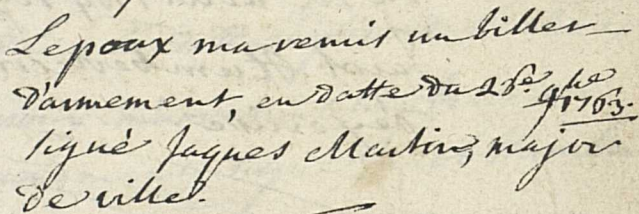 Lepoux ma remis un billet
d'armement, en datte du 26e. 9bre 1763.
signé Jaques Martin, major
de ville.